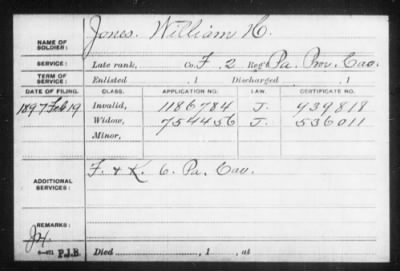 NAME OF SOLDIER: Jones, William H.
SERVICE: Late rank, Co. F. 2 Reg't Pa. Prov. Cav.
TERM OF SERVICE: Enlisted , 1 Discharged , 1
DATE OF FILING. CLASS. APPLICATION NO. LAW. CERTIFICATE NO.
1897 Feb 19 Invalid, 1186784 J. 939818
Widow, 754456 J. 536011
Minor,
ADDITIONAL SERVICES: F. & K. 6. Pa. Cav.
REMARKS:
P.J.B. Died , 1 , at